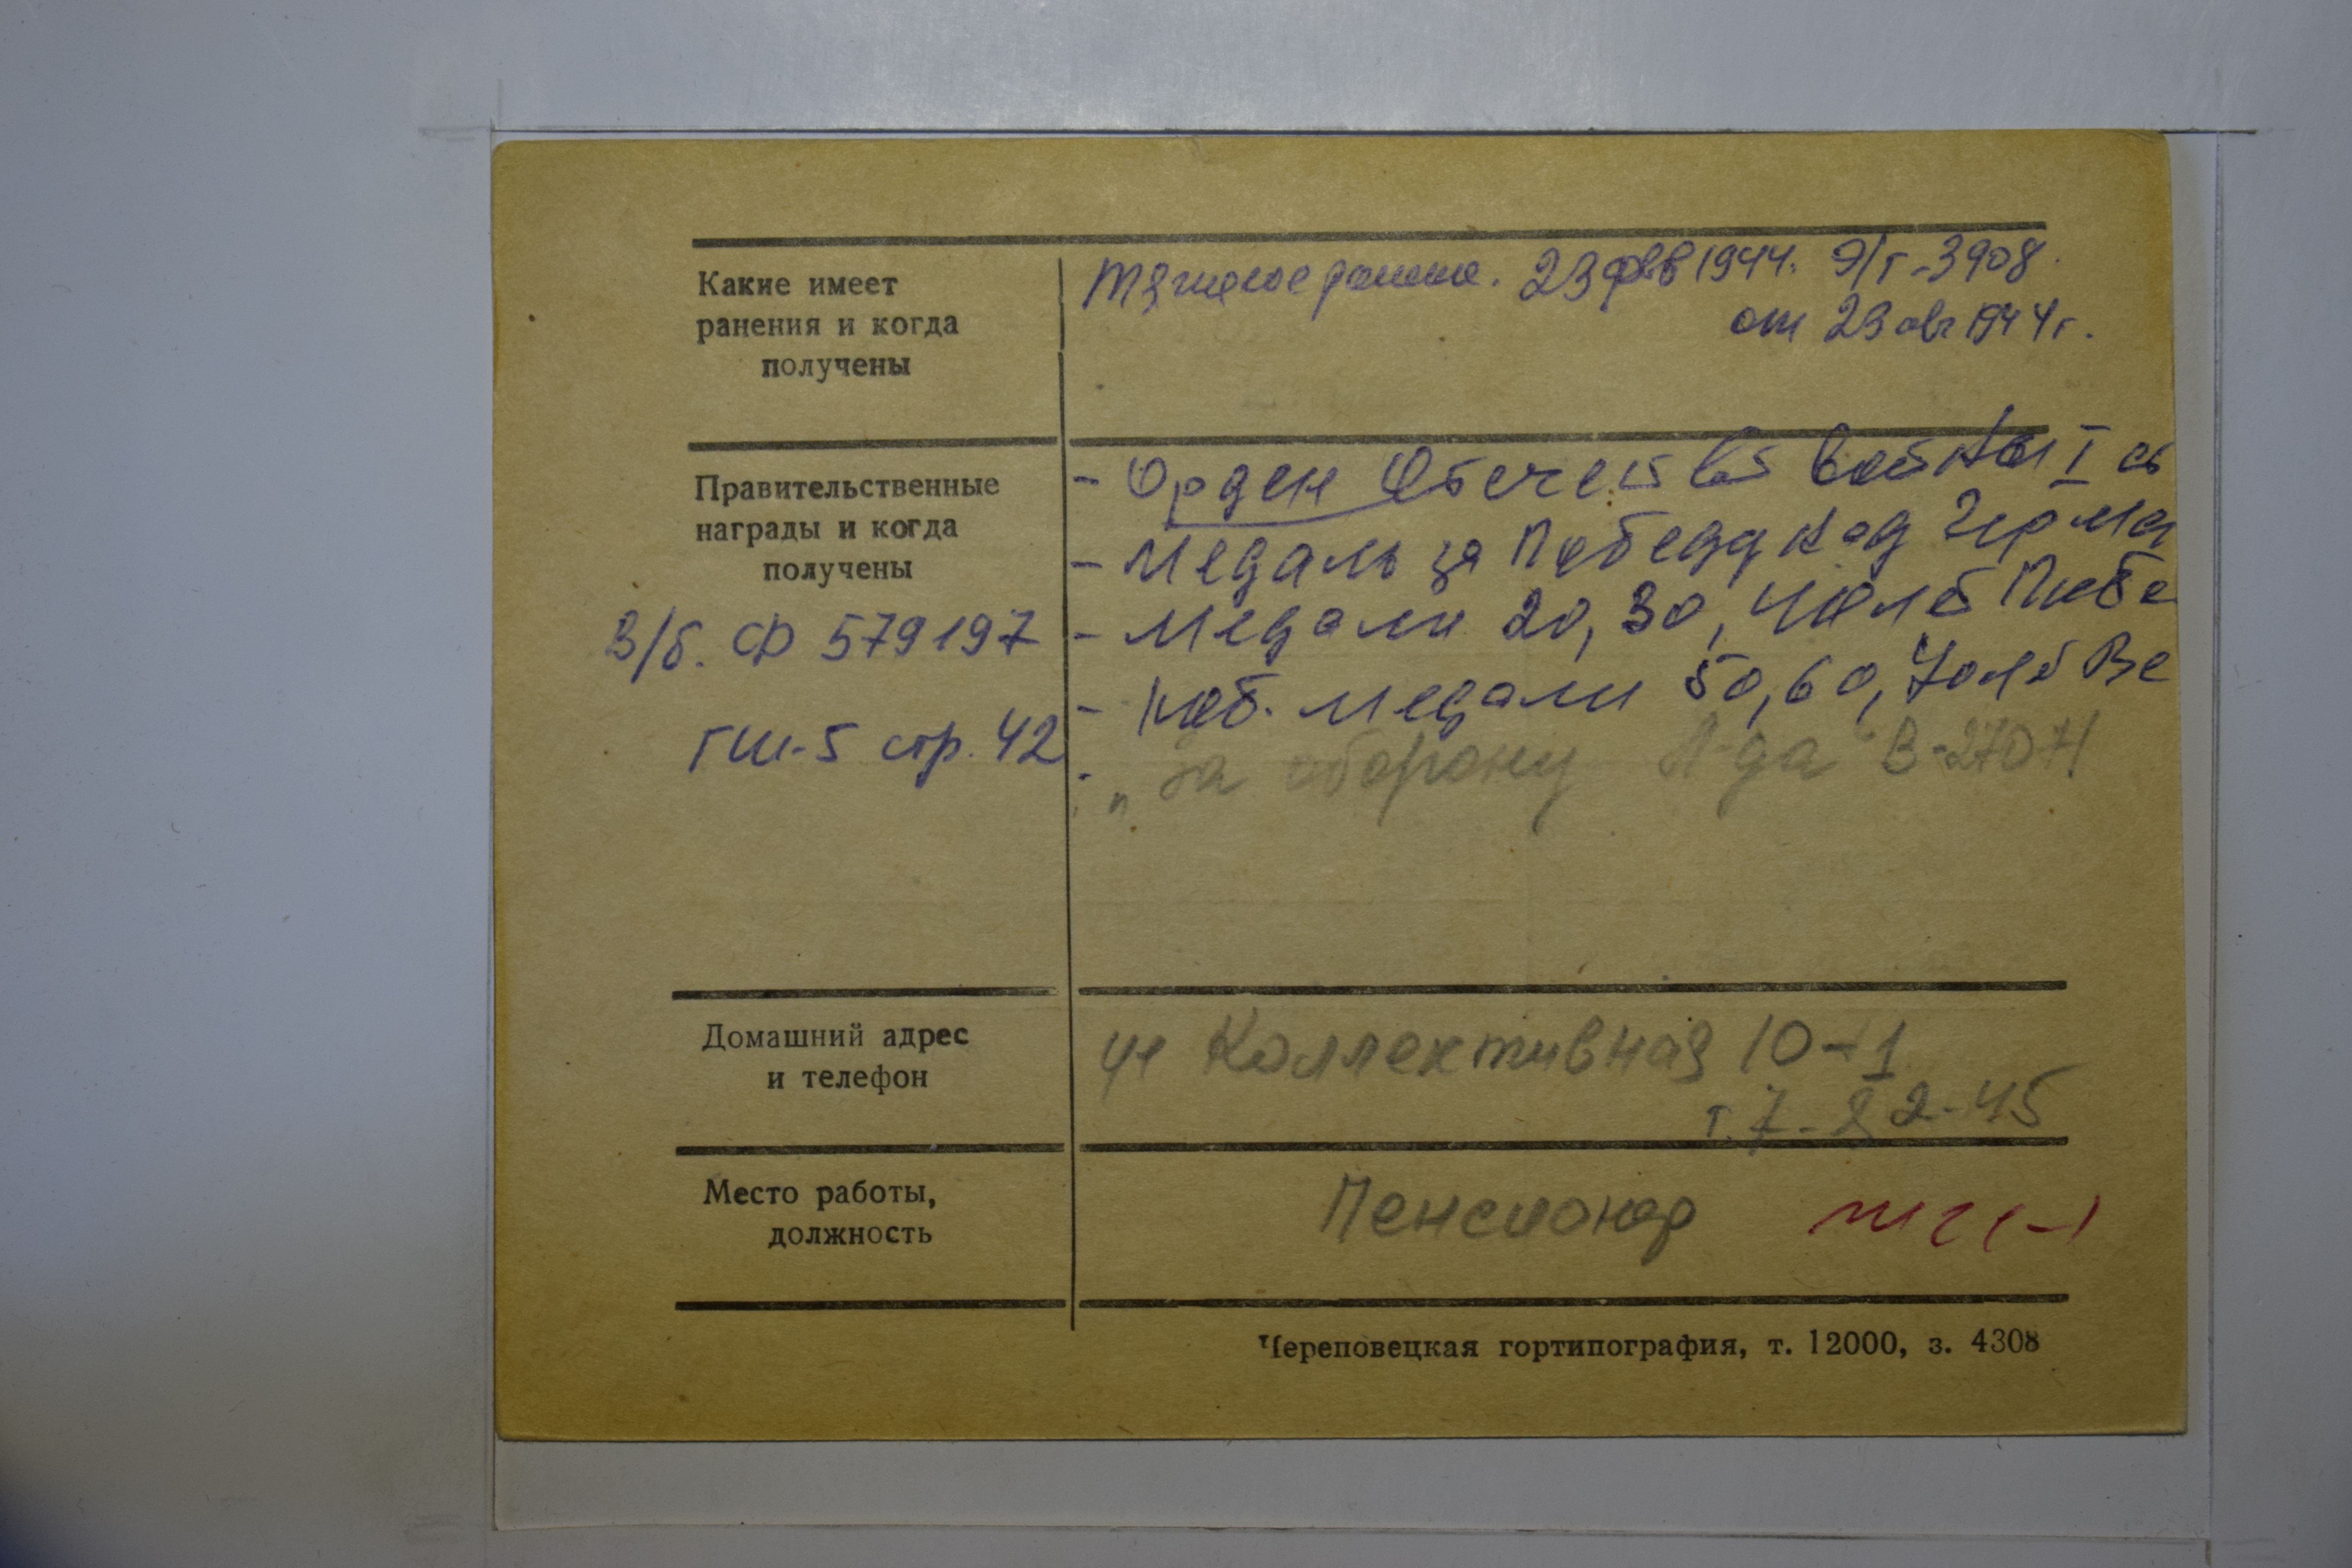 Какие имеет
ранения и когда
получены
Тяжелое ранение. 23 фев 1944. Э/г-3908.
от 23 авг 1944г.
Правительственные
награды и когда
получены
В/б. Ф 579197
ГШ-5 стр. 42
- Орден Отечеств войны I ст
- Медаль за Победу над Герма
- Медали 20, 30, 40 лет Побе
- Юб. медали 50, 60, 70 лет ВС
- "За оборону Л-да В-27071
Домашний адрес
и телефон
ул Коллективная 10-1
т. 7-82-45
Место работы,
должность
Пенсионер
Череповецкая гортипография, т. 12000, з. 4308